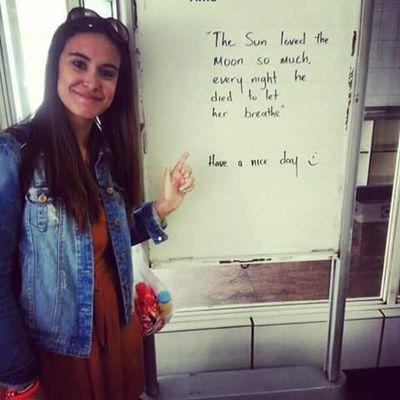 "The Sun loved the
Moon so much,
every night he
died to let
her breathe"
Have a nice day :)